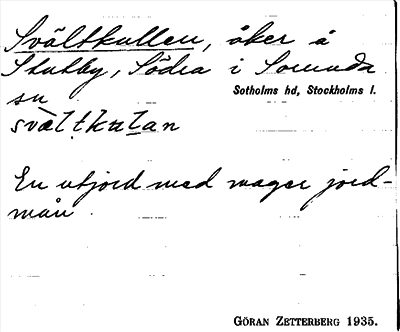 Svältkullen, åker å
Stutby, Södra i Sorunda
sn
Sotholms hd, Stockholms l.
svæ̀ltkulan
En utjord med mager jord-
mån
GÖRAN ZETTERBERG 1935.